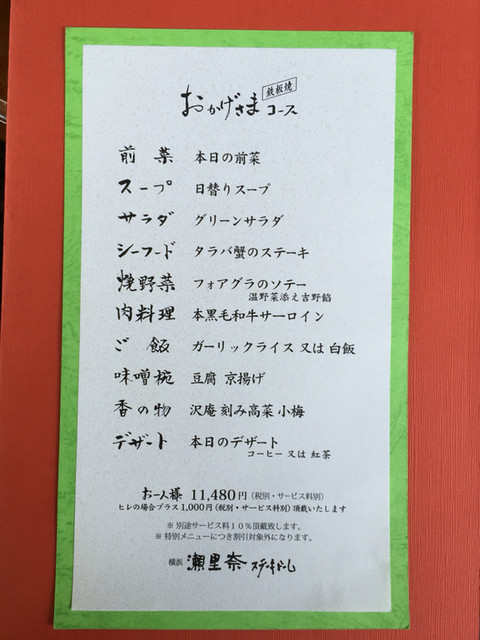 おかげさまコース 鉄板焼
前菜 本日の前菜
スープ 日替りスープ
サラダ グリーンサラダ
シーフード タラバ蟹のステーキ
焼野菜 フォアグラのソテー
温野菜添え吉野餡
肉料理 本黒毛和牛サーロイン
ご飯 ガーリックライス 又は 白飯
味噌椀 豆腐 京揚げ
香の物 沢庵 刻み高菜 小梅
デザート 本日のデザート
コーヒー 又は 紅茶
お一人様 11,480円（税別・サービス料別）
ヒレの場合プラス1,000円（税別・サービス料別）頂戴いたします
※ 別途サービス料１０％頂戴致します。
※ 特別メニューにつき割引対象外になります。
横浜 瀬里奈 ステーキドーム